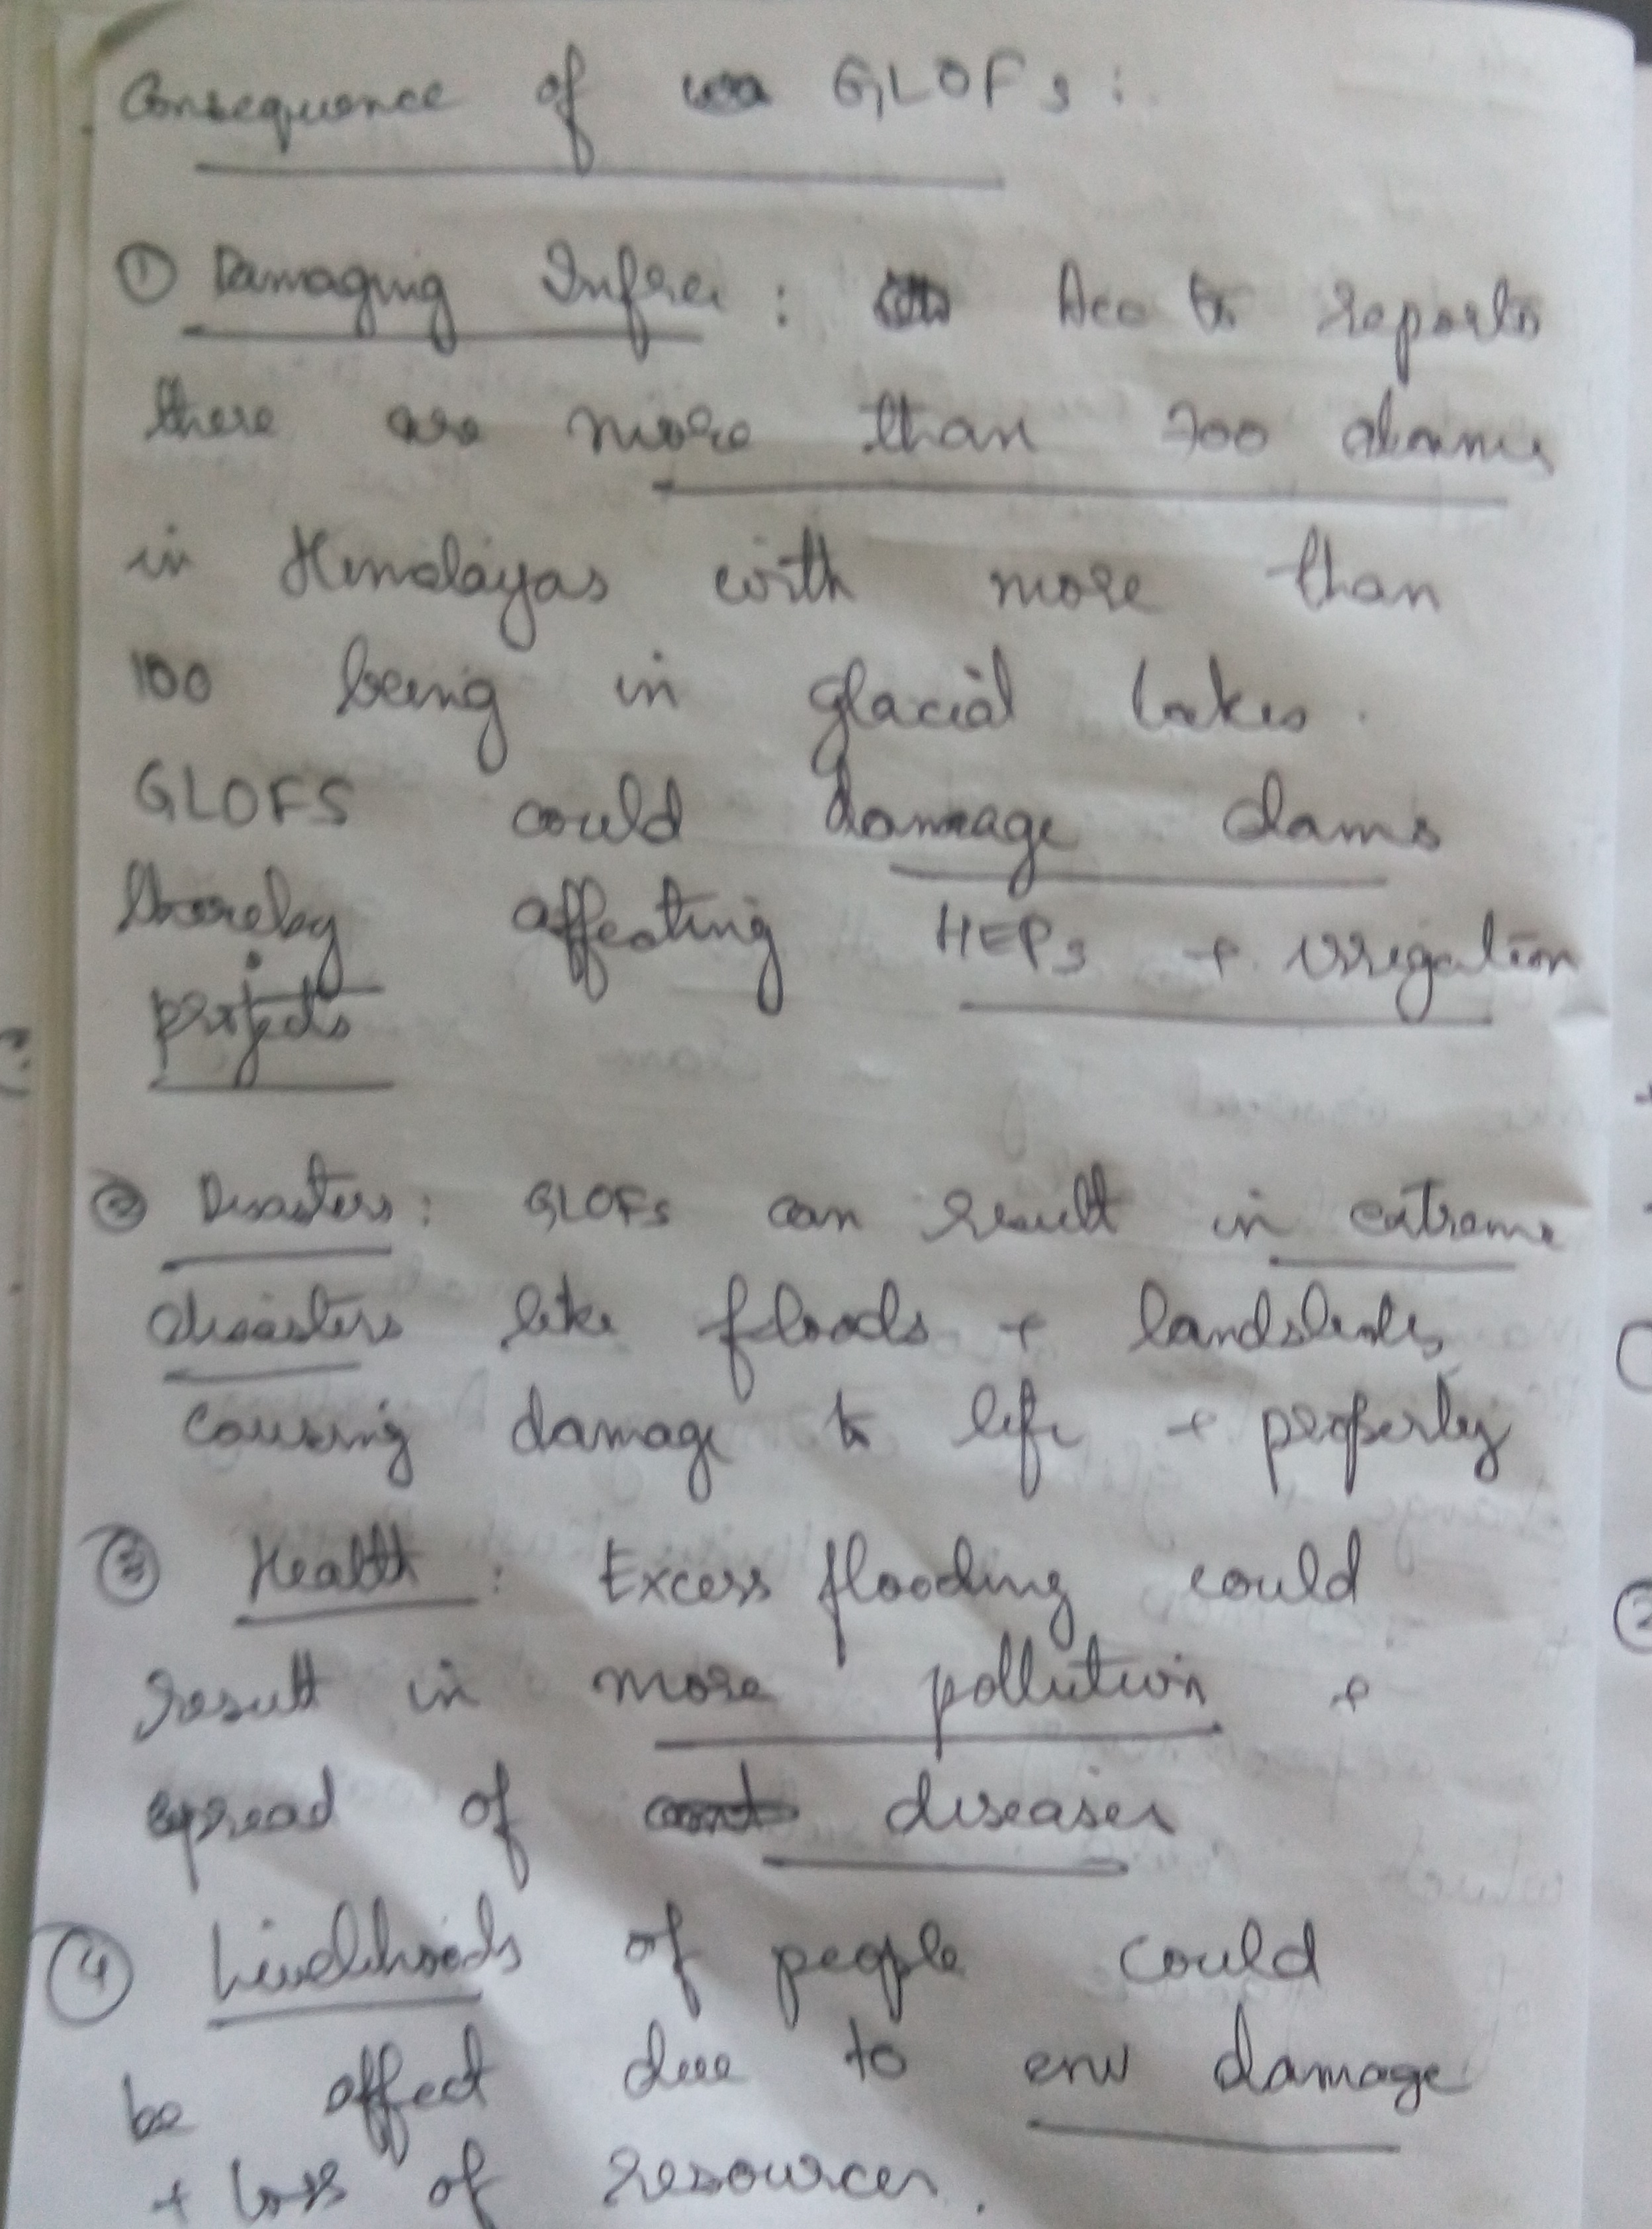 Consequence of GLOFs :
① Damaging Infra : Acc to reports
there are more than 700 dams
in Himalayas with more than
100 being in glacial lakes.
GLOFS could damage dams
thereby affecting HEPs + irrigation
projects
② Disasters : GLOFs can result in extreme
disasters like floods + landslides,
causing damage to life + property
③ Health : Excess flooding could
result in more pollution +
spread of diseases
④ Livelihoods of people could
be affect due to env damage
+ loss of resources.